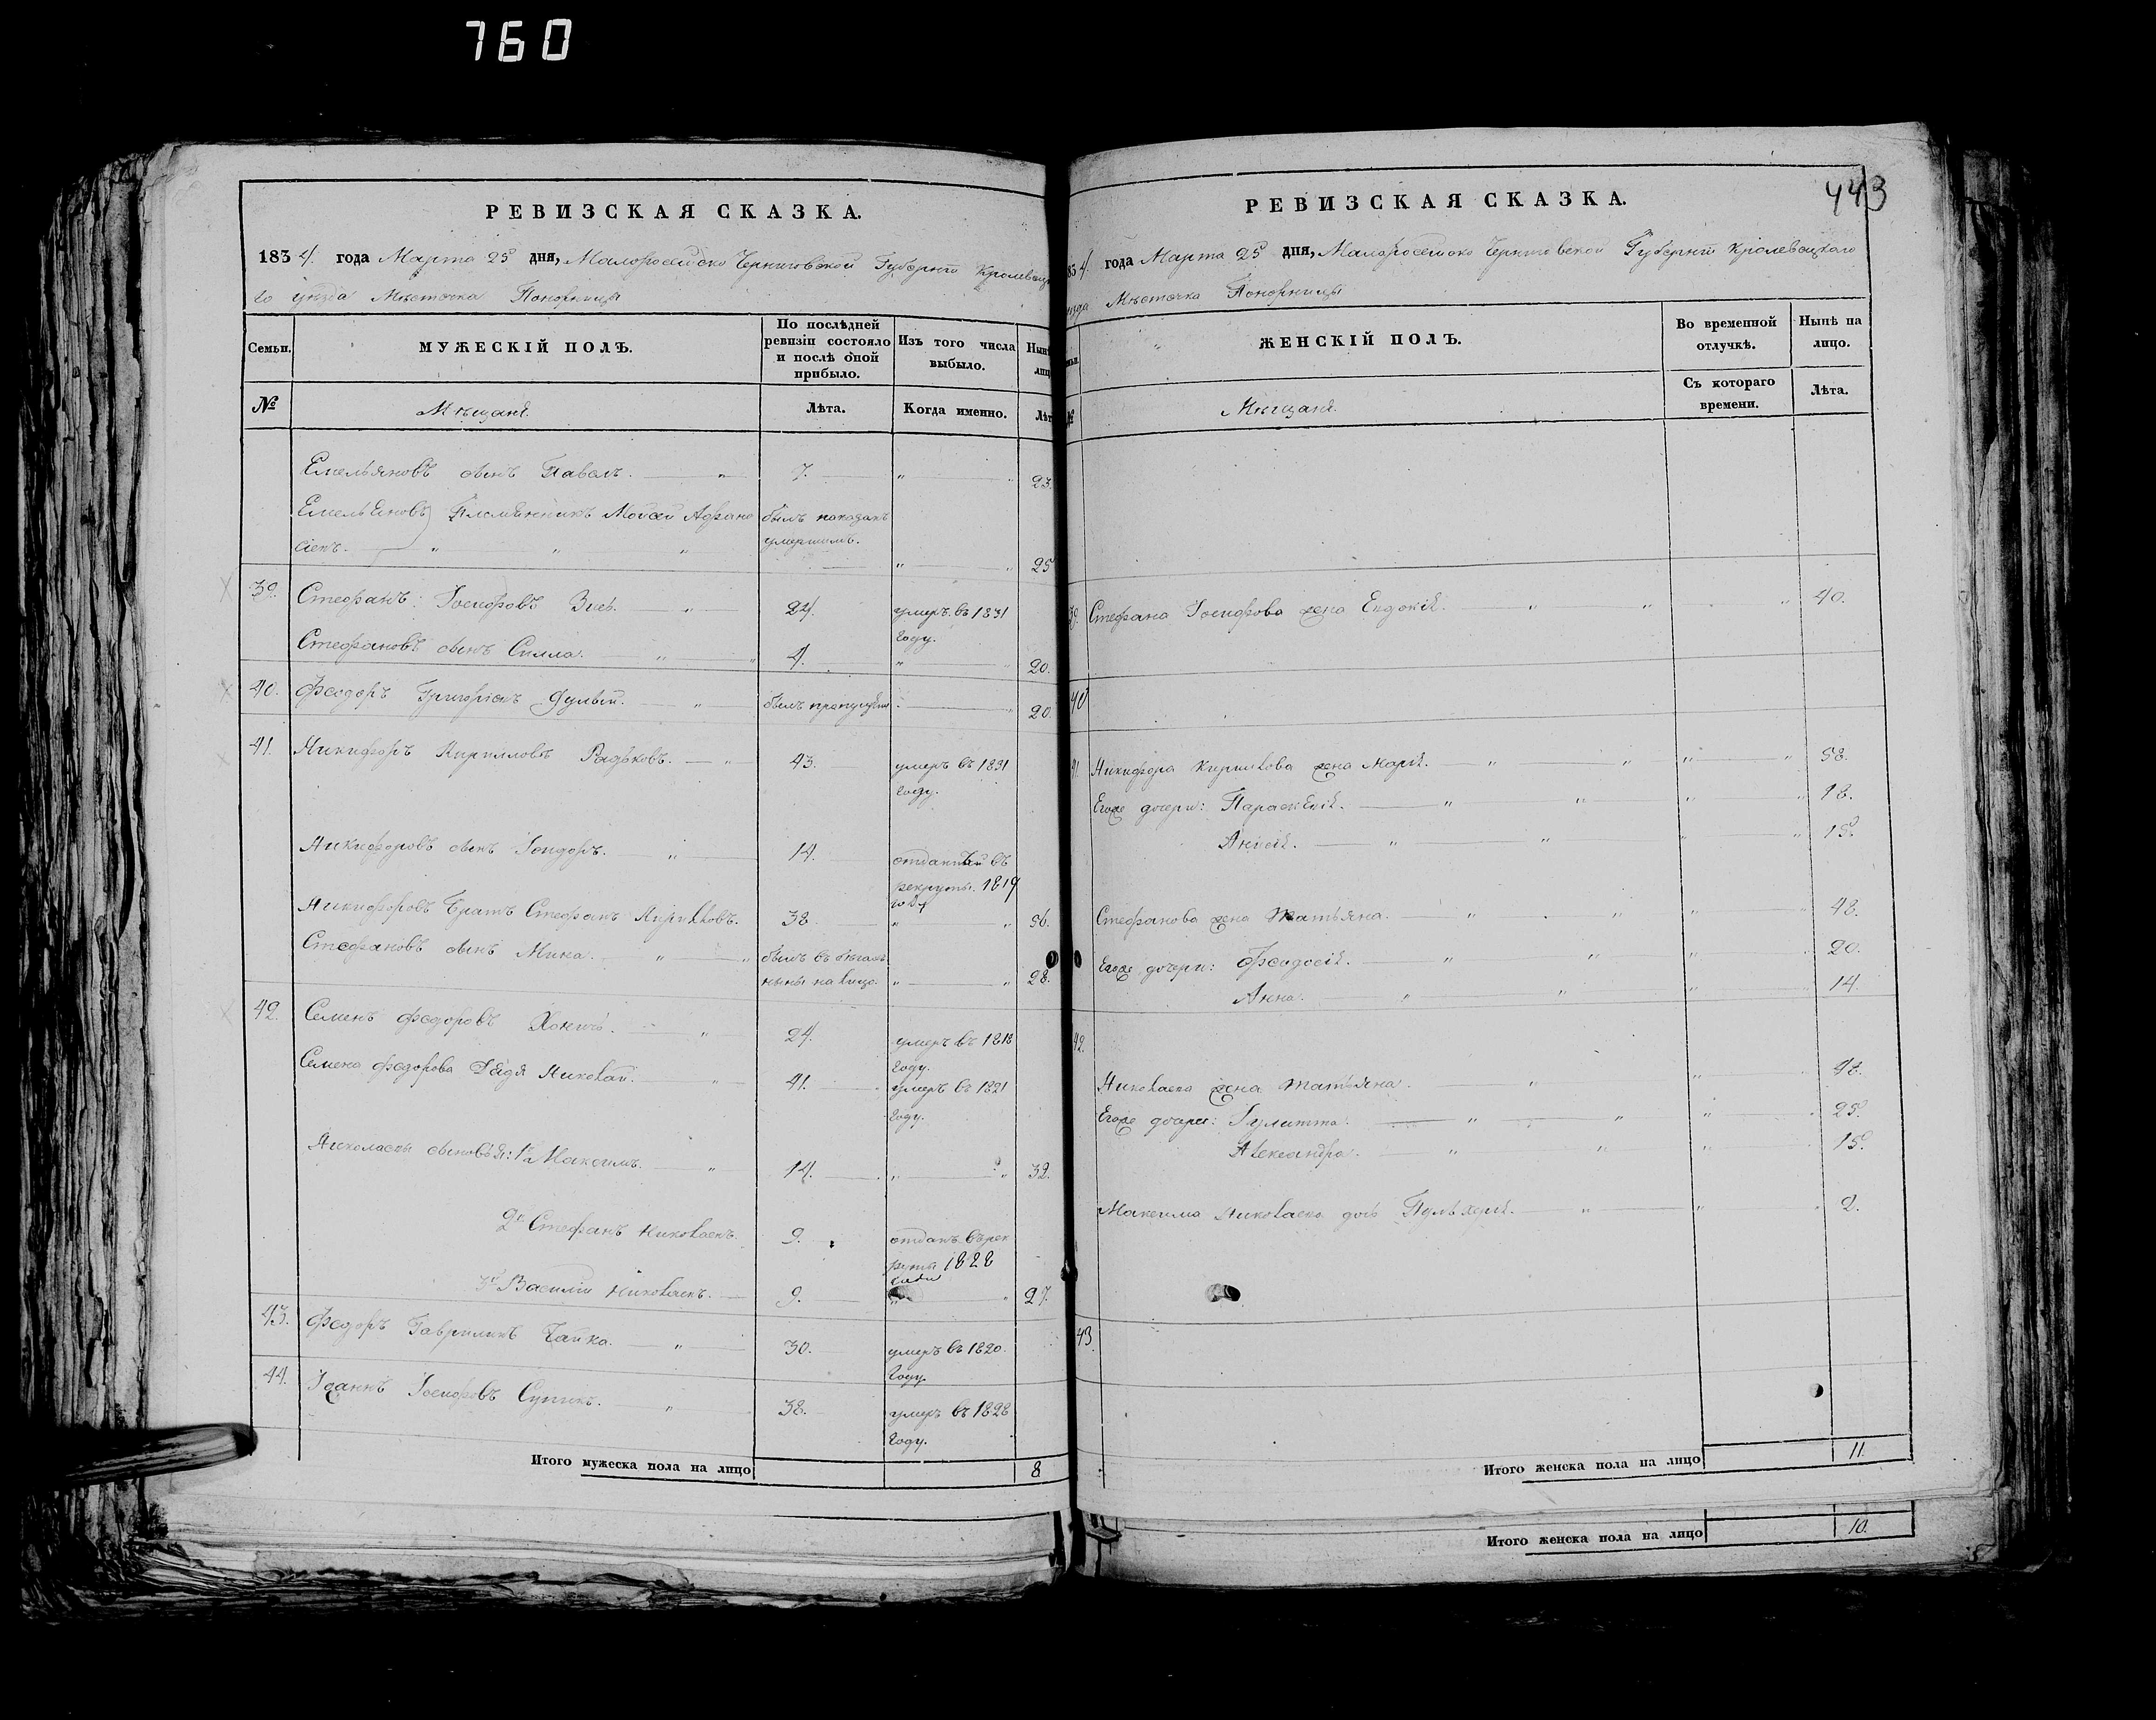 760
РЕВИЗСКАЯ СКАЗКА.
1834 года Марта 25 дня, Малоросейско Черниговской Губерніи Кролевецка
го уезда Мѣсточка Понорницы
Семьи.
МУЖЕСКІЙ ПОЛЪ.
По послѣдней ревизіи состояло и послѣ оной прибыло.
Изъ того числа выбыло.
№
Мѣщанѣ.
Лѣта.
Когда именно.
Емельяновъ сынъ Павелъ. 7. 23.
Емельяновъ Племянникъ Мойсей Афана былъ показанъ
сіевъ. умершимъ. 25
39. Стефанъ Іосифовъ 24. умеръ въ 1831
году.
Стефановъ сынъ Силла. 4. 20.
40. Феодоръ Григоріевъ былъ пропущенъ 20.
41. Никифоръ Кирилловъ Радьковъ. 43. умеръ въ 1831
году.
Никифоровъ сынъ Ісидоръ. 14. отданный въ
рекруты. 1819
года
Никифоровъ Братъ Стефанъ Кириловъ. 38. 56.
Стефановъ сынъ Мина. былъ въ бѣгахъ
нынѣ на лицо. 28.
42. Семенъ Федоровъ 24. умеръ въ 1818
году.
Семена Федорова Дядя Николай. 41. умеръ въ 1821
году.
Николаевы сыновья: 1й Максимъ. 14. 32.
2й Стефанъ Николаевъ. 9. отданъ въ рек
руты 1828
года
3й Василій Николаевъ. 9. 27.
43. Федоръ Гавриловъ Чайка. 30. умеръ въ 1820
году.
44. Іоаннъ Іосифовъ 38. умеръ въ 1828
году.
Итого мужеска пола на лицо 8
443
РЕВИЗСКАЯ СКАЗКА.
года Марта 25 дня, Малоросейско Черниговской Губерніи Кролевецкаго
Мѣсточка Понорницы
ЖЕНСКІЙ ПОЛЪ.
Во временной отлучкѣ.
Нынѣ на лицо.
Мѣщанѣ.
Съ котораго времени.
Лѣта.
39. Стефана Іосифова жена Евдокія. 40.
40
41. Никифора Кирилова жена Марія. 58.
Егоже дочери: Параскевія. 18.
Анисія. 15.
Стефанова жена Татьяна. 48.
Егоже дочери: Феодосія. 20.
Анна. 14.
42.
Николаева жена Татьяна. 48.
Егоже дочери: Гулитта. 25.
Александра. 15.
Максима Николаева дочь Пульхерія. 2.
43.
Итого женска пола на лицо 11
Итого женска пола на лицо 10.